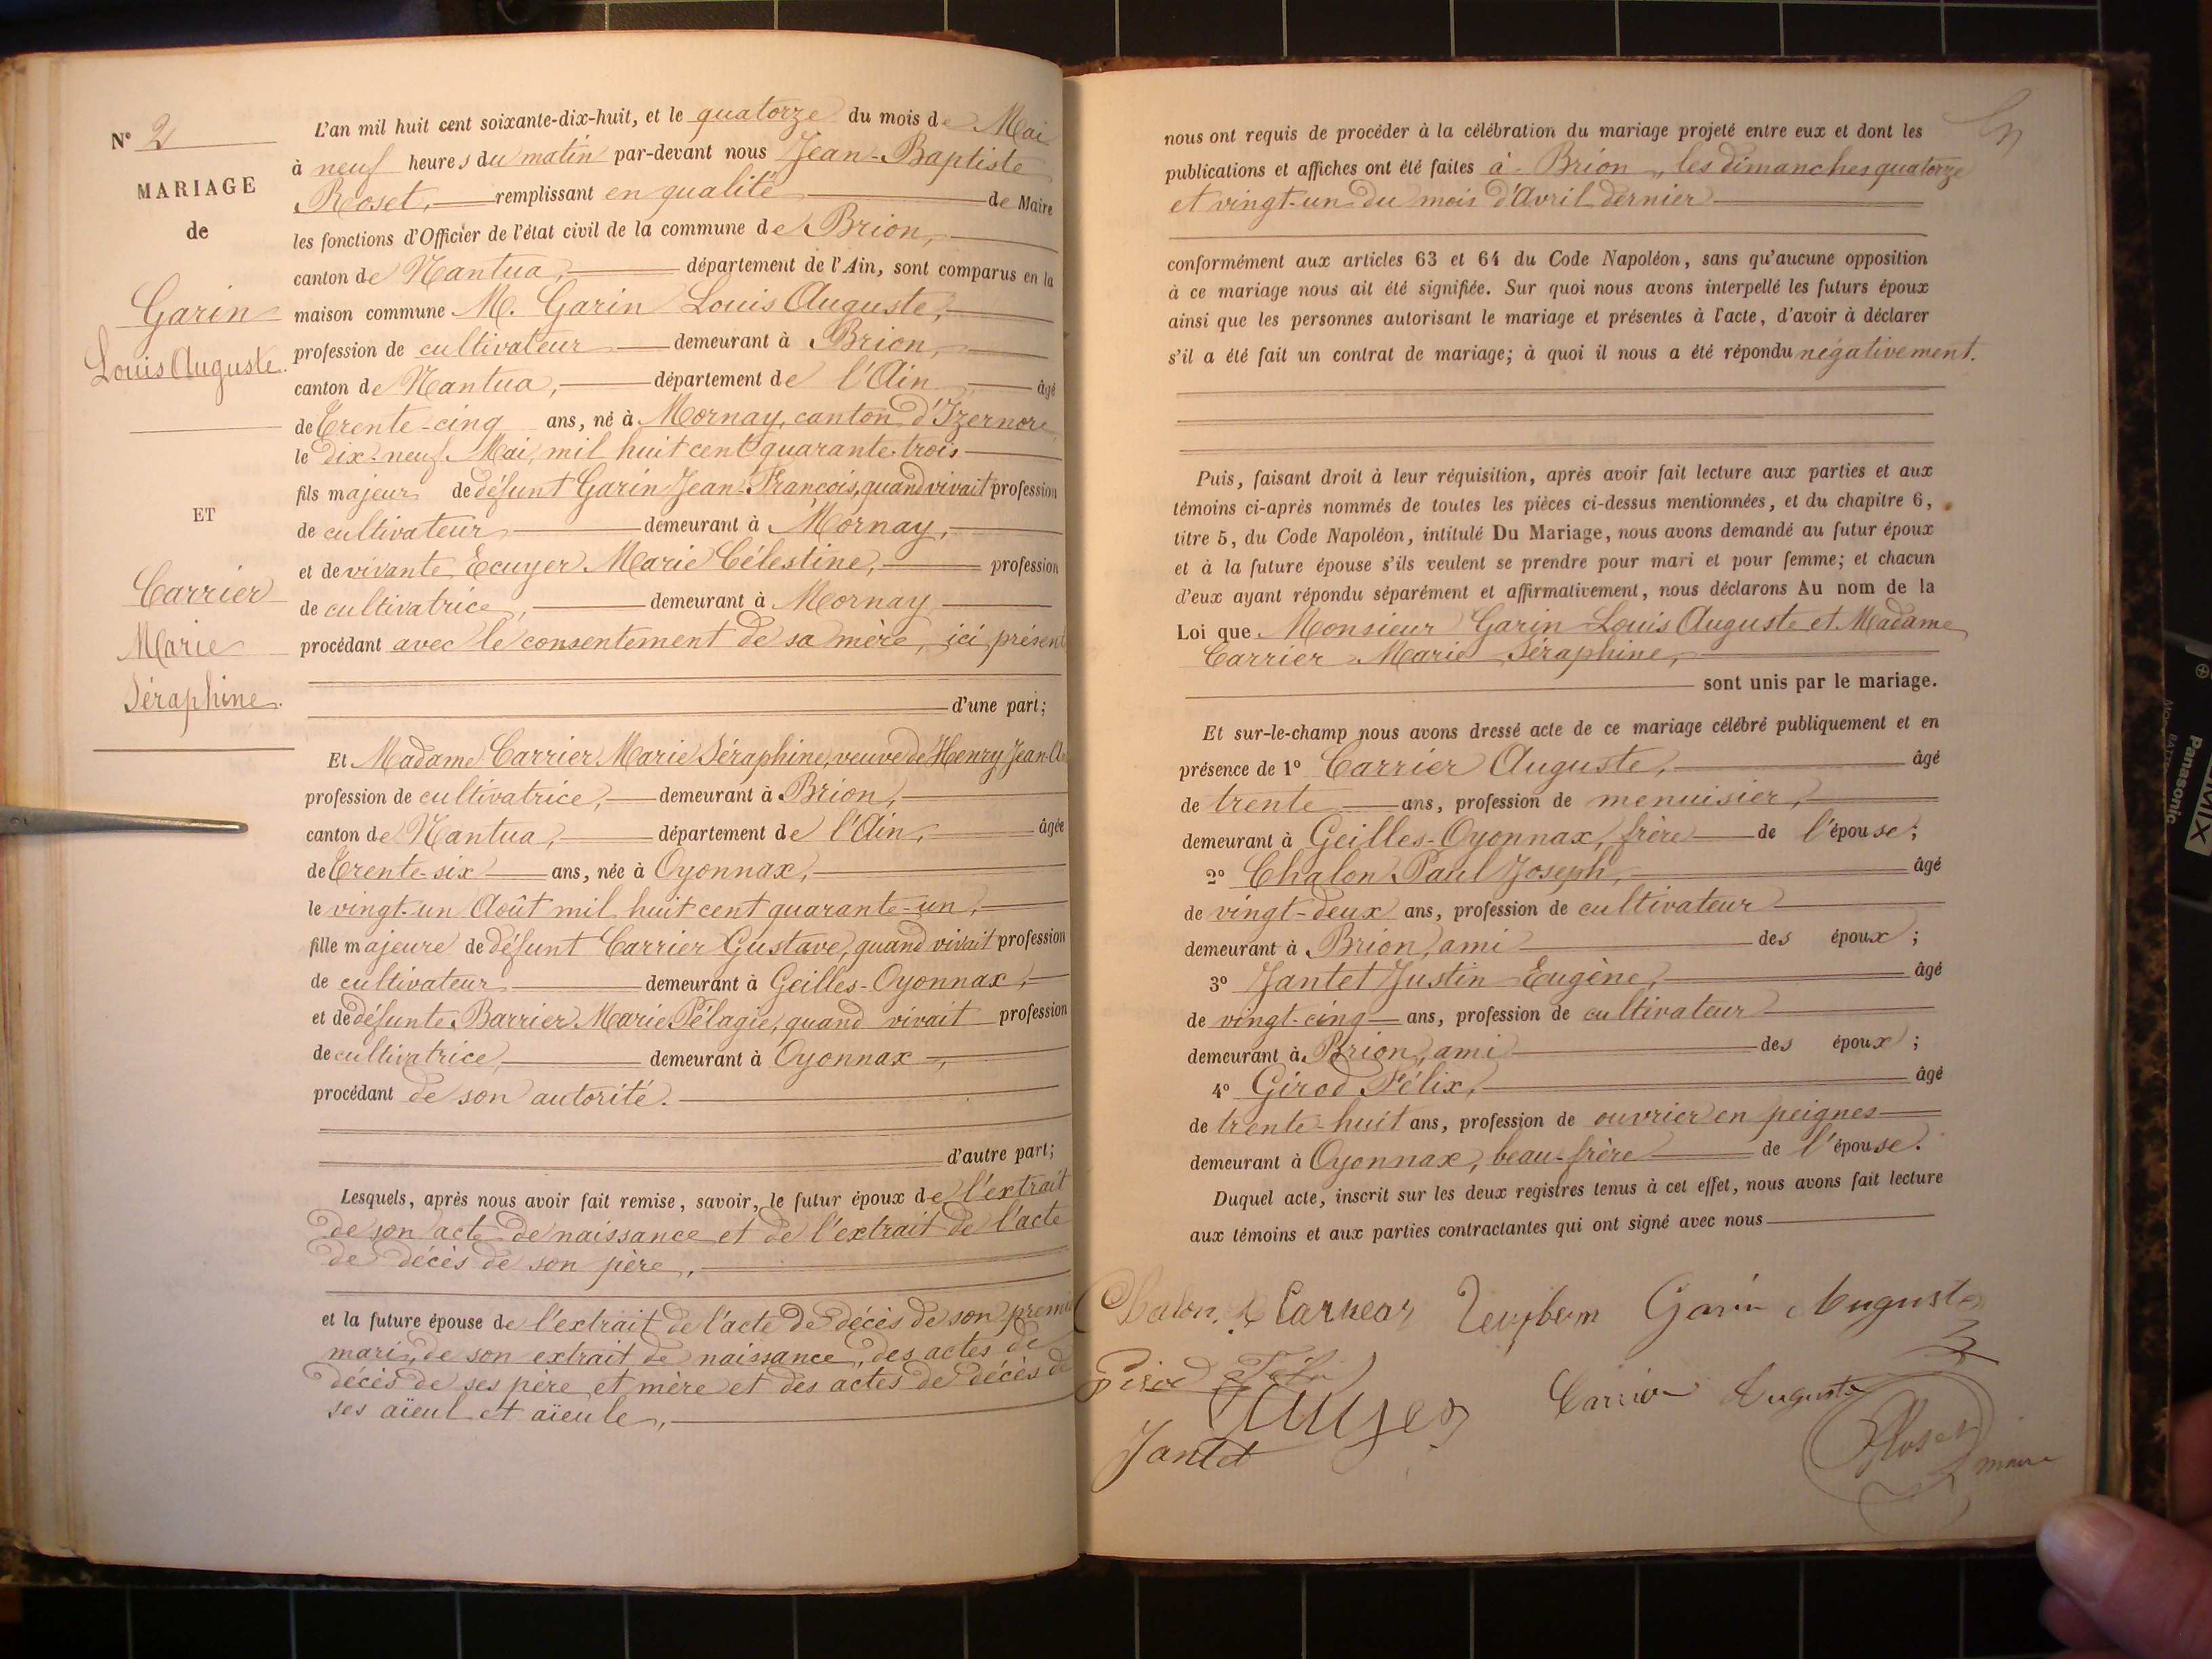 N° 2
MARIAGE
de
Garin
Louis Auguste.
ET
Carrier
Marie
Séraphine.
L'an mil huit cent soixante-dix-huit, et le quatorze du mois de Mai
à neuf heures du matin par-devant nous Jean-Baptiste
Roset, remplissant en qualité de Maire
les fonctions d'Officier de l'état civil de la commune de Brion,
canton de Nantua, département de l'Ain, sont comparus en la
maison commune M. Garin Louis Auguste,
profession de cultivateur demeurant à Brion,
canton de Nantua, département de l'Ain âgé
de trente-cinq ans, né à Mornay, canton d'Izernore
le dix-neuf Mai, mil huit cent quarante-trois
fils majeur de défunt Garin Jean-François, quand vivait profession
de cultivateur demeurant à Mornay,
et de vivante Ecuyer Marie Célestine, profession
de cultivatrice, demeurant à Mornay
procédant avec le consentement de sa mère, ici présent
d'une part;
Et Madame Carrier Marie Séraphine, veuve de Henry Jean-
profession de cultivatrice, demeurant à Brion,
canton de Nantua, département de l'Ain, âgée
de trente-six ans, née à Oyonnax,
le vingt-un Août mil huit cent quarante-un,
fille majeure de défunt Carrier Gustave, quand vivait profession
de cultivateur demeurant à Geilles-Oyonnax,
et de défunte Barrier Marie Pélagie, quand vivait profession
de cultivatrice, demeurant à Oyonnax,
procédant de son autorité.
d'autre part;
Lesquels, après nous avoir fait remise, savoir, le futur époux de l'extrait
de son acte de naissance et de l'extrait de l'acte
de décès de son père,
et la future épouse de l'extrait de l'acte de décès de son premi
mari, de son extrait de naissance, des actes de
décès de ses père et mère et des actes de décès de
ses aïeul et aïeule,
nous ont requis de procéder à la célébration du mariage projeté entre eux et dont les
publications et affiches ont été faites à Brion, les dimanches quatorze
et vingt-un du mois d'Avril dernier
conformément aux articles 63 et 64 du Code Napoléon, sans qu'aucune opposition
à ce mariage nous ait été signifiée. Sur quoi nous avons interpellé les futurs époux
ainsi que les personnes autorisant le mariage et présentes à l'acte, d'avoir à déclarer
s'il a été fait un contrat de mariage; à quoi il nous a été répondu négativement.
Puis, faisant droit à leur réquisition, après avoir fait lecture aux parties et aux
témoins ci-après nommés de toutes les pièces ci-dessus mentionnées, et du chapitre 6,
titre 5, du Code Napoléon, intitulé Du Mariage, nous avons demandé au futur époux
et à la future épouse s'ils veulent se prendre pour mari et pour femme; et chacun
d'eux ayant répondu séparément et affirmativement, nous déclarons Au nom de la
Loi que Monsieur Garin Louis Auguste et Madame
Carrier Marie Séraphine,
sont unis par le mariage.
Et sur-le-champ nous avons dressé acte de ce mariage célébré publiquement et en
présence de 1° Carrier Auguste, âgé
de trente ans, profession de menuisier,
demeurant à Geilles-Oyonnax, frère de l'épouse;
2° Chalon Paul Joseph, âgé
de vingt-deux ans, profession de cultivateur
demeurant à Brion, ami des époux;
3° Jantet Justin Eugène, âgé
de vingt-cinq ans, profession de cultivateur
demeurant à Brion, ami des époux;
4° Girod Félix, âgé
de trente-huit ans, profession de ouvrier en peignes
demeurant à Oyonnax, beau-frère de l'épouse.
Duquel acte, inscrit sur les deux registres tenus à cet effet, nous avons fait lecture
aux témoins et aux parties contractantes qui ont signé avec nous
Chalon
Garin Auguste
Carrier Auguste
Jantet
Roset maire
Panasonic